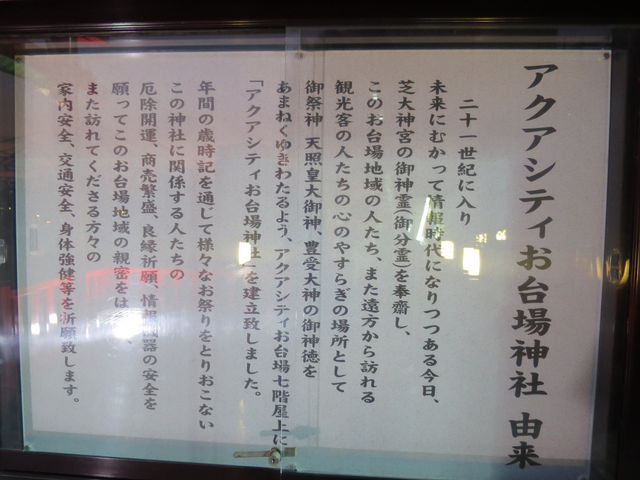 アクアシティお台場神社 由来
二十一世紀に入り
未来にむかって情報時代になりつつある今日、
芝大神宮の御神霊(御分霊)を奉齋し、
このお台場地域の人たち、また遠方から訪れる
観光客の人たちの心のやすらぎの場所として
御祭神 天照皇大御神、豊受大神の御神徳を
あまねくゆきわたるよう、アクアシティお台場七階屋上に
「アクアシティお台場神社」を建立致しました。
年間の歳時記を通じて様々なお祭りをとりおこない
この神社に関係する人たちの
厄除開運、商売繁盛、良縁祈願、情報機器の安全を
願ってこのお台場地域の親密をは
また訪れてくださる方々の
家内安全、交通安全、身体強健等を祈願致します。